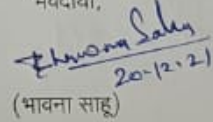 भवदीया,
Bhawna Sahu
20-12-21
(भावना साहू)